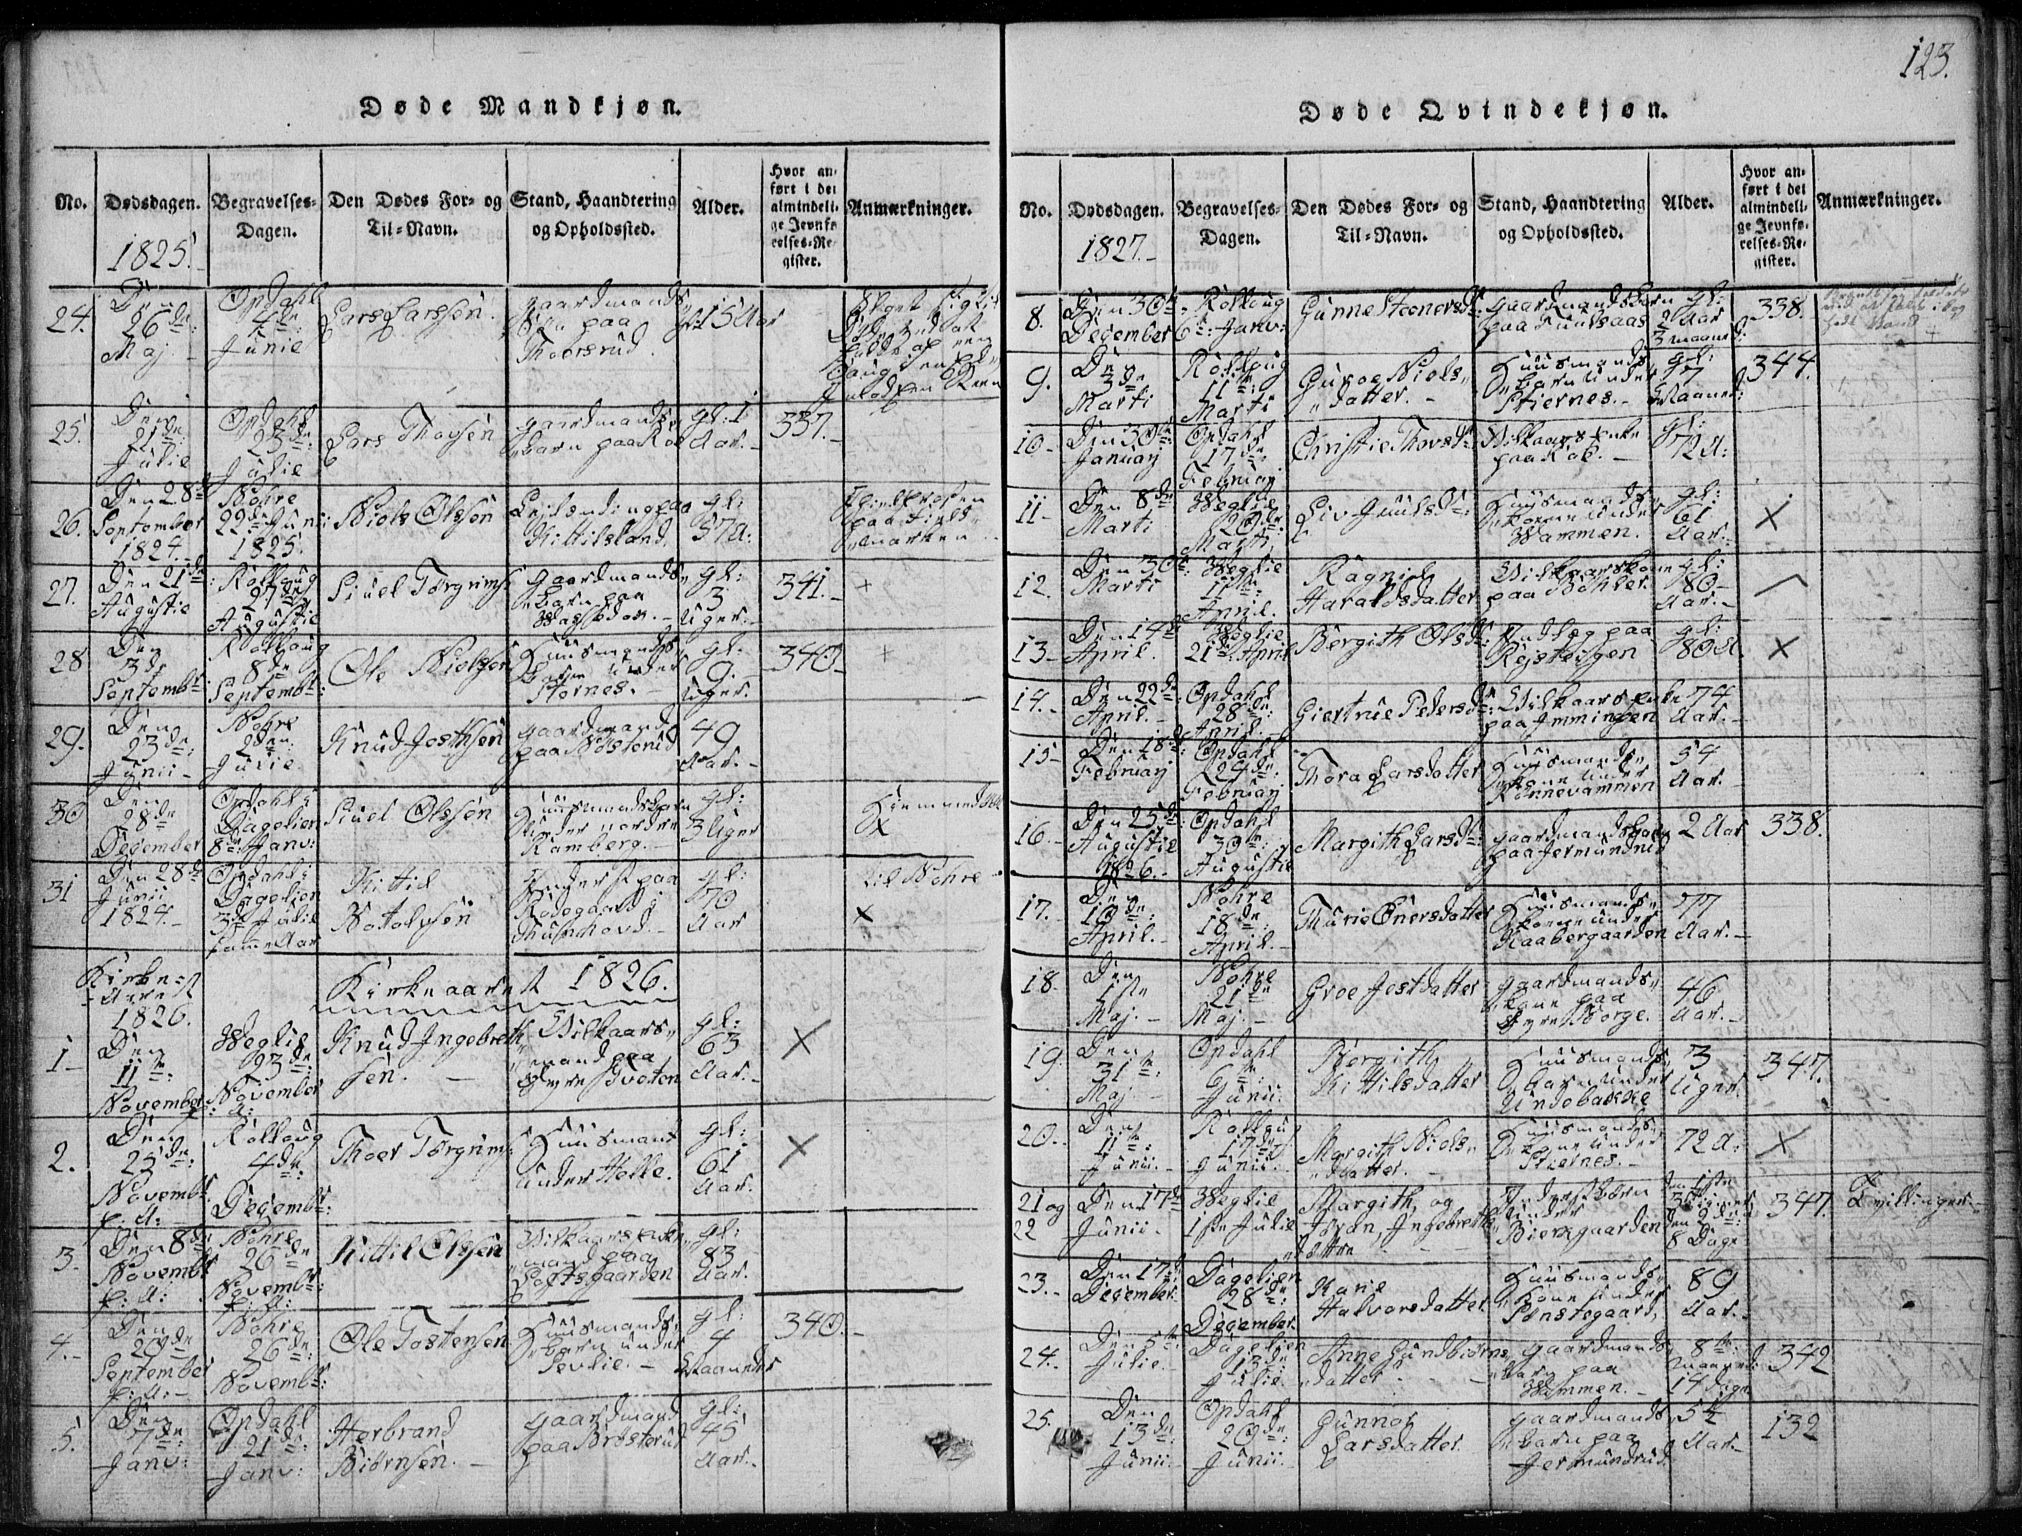 123.
Døde Mandkjøn.
No.
Dødsdagen.
1825.
Begravelses-
Dagen.
Den Dødes For- og
Til-Navn.
Stand, Haandtering
og Opholdssted.
Alder.
Hvor an-
ført i det
almindeli-
ge Jevnfø-
relses-Re-
gister.
Anmærkninger.
24.
Den
26de
Maj.
Opdahl
4de
Junie
Lars Larssøn.
Gaardmands
Søn paa
Thoersrud.
gl: 15 Aar
25.
Den
21de
Julie
Opdahl
23de
Julie
Lars Thovsøn
gaardmands
barn paa Raae
gl: 1
Aar.
337.
26.
Den 28de
September
1824.
Nøhre
29de Juni
1825.
Niels Olssøn
Leilænding paa
Kittilsland.
gl:
37 A:
27.
Den 21de
Augustie
Rolloug
27de
Augustie
Siuel Torgrims:
Gaardmands
barn paa
gl:
3
Uger.
341.
+
28
Den
3de
Septembr
Rolloug
8de
Septembr:
Ole Nielssøn
Huusmands
barn under
Stærnes.
gl:
9.
Uger.
340
+
29.
Den
23de
Junii
Nøhre
2den
Julie
Knud Josthsøn
gaardmand
paa Nøsterud
49
Aar.
30
Den
28de
December
Opdahl i
Dagelien
8de Janv:
Siuel Olssøn
Huusmandsbarn
under nordre
Ramberg.
gl:
3 Uger
Hiemmedøbt
X
31
Den 28de
Junii
1824.
Opdahl i
Dagelien
3de Julie
samme Aar
Kittil
Botolvsøn
Inderst paa
Rødegaard i
Thunhovd.
gl:
70
Aar
til Nøhre
X
Kirke-
Aaret
1826.
Kirkeaaret 1826.
1
Den
11te
November
f: A:
Weglie
23de
November
Knud Ingebreth-
sen.
Vilkaars-
mand paa
Øyre Tvøten
gl:
63
Aar.
X
2.
Den
23de
Novembr
f: A:
Rolloug
4de
Decembr:
Thoer Torgrims:
Huusmand
under Helle.
gl:
61
Aar.
X
3.
Den 8de
Novembr
f: A:
Nøhre
26de
Novembr:
f: A:
Kittil Olssøn
Vilkaars-
mand paa
Loftsgaarden
gl:
83
Aar.
4.
Den
20de
September
f: A:
Nøhre
26de
Novembr:
Ole Tostensøn
Huusmands
barn under
Sevlie.
gl:
4
Maaneder
340.
5.
Den
7de
Janv:
Opdahl
21de
Janv:
Herbrand
Biørnsøn.
gaardmand
paa Brøsterud
gl:
45
Aar.
Døde Qvindekjøn.
No.
Dødsdagen.
1827.
Begravelses-
Dagen.
Den Dødes For- og
Til-Navn.
Stand, Haandtering
og Opholdssted.
Alder.
Hvor an-
ført i det
almindeli-
ge Jevnfø-
relses-Re-
gister.
Anmærkninger.
8.
Den 30te
December
Rolloug
6te Janv:
Gunne Steenersd:
gaardmandsbarn
paa Fuulsaas
gl:
2 Aar
3 maaned:
338.
9.
Den
3de
Marti
Rolloug
11te
Marti
Guroe Niels
datter.
Huusmands
barn under
Stiernes.
gl:
7
Maaned:
344.
10
Den 30te
Januarij
Opdahl
17de
Februarij
Christie Thovsd:
Vilkaars Enke
paa Raae.
gl:
72 A:
11
Den 8de
Marti
Weglie
20de
Marti
Liv Juulsd:
Huusmands
kone under
Wammen.
gl:
61
Aar.
X
12.
Den 30te
Marti
Weglie
11te
April.
Ragnil
Haraldsdatter
Vilkaarskone
paa Bøhler
gl:
80
Aar.
13
Den 14de
April.
Weglie
21de April
Bergith Olsd:
Indlæg paa
gl:
80 A.
X
14.
Den 22de
April.
Opdahl
28de
April.
Giertrue Pedersd:
Vilkaars Enke
paa Immingen
74
Aar.
15
Den 18de
Februarij
Opdahl
24de
Februarij
Thora Larsdatter
Huusmands
kone under
Rønnevammen
54
Aar.
16.
Den 25de
Augustie
1826.
Opdahl
30te
Augustie
Margith Larsd:
gaardmandsbarn
paa Jermundrud
2 Aar
338.
17.
Den
10de
April.
Nøhre
18de
April.
Thurie Enersdatter
Huusmands
kone under
Kaabergaarden
77
Aar.
18.
Den
1ste
Maj.
Nøhre
21de
Maj.
Groe Jostdatter
gaardmands
kone paa
Øyre Borge.
46
Aar.
19.
Den
31te
Maj.
Opdahl
9de
Junii.
Bergith
Kittilsdatter
Huusmands
barn under
Undebakke
3
Uger.
347.
20.
Den
11te
Junii.
Rolloug
17de
Junii.
Margith Niels
datter.
Huusmands
kone under
Stiernes.
72 A:
X
21 og
22
Den 17de
Junii.
Weglie
1ste Julie
Margith, og
Joran, Ingebreths
døttre
Inderst børn
under
Bierkgaarden
8 Dage
347.
Tvillinger.
23.
Den 17de
December.
Dagelien
28de
December.
Karie
Halvorsdatter
Huusmands
kone under
Tønstegaard,
89
Aar.
24.
Den 5te
Julie.
Dagelien
13de
Julie.
Anne Gundbiørns
datter
gaardmands
barn paa
Wammen.
8te
maaned:
14 dage
342
25.
Den
13de
Junii.
Opdahl
20de
Junii.
Gunnor
Larsdatter.
gaardmands
barn paa
Jermundrud.
5½
Aar
132